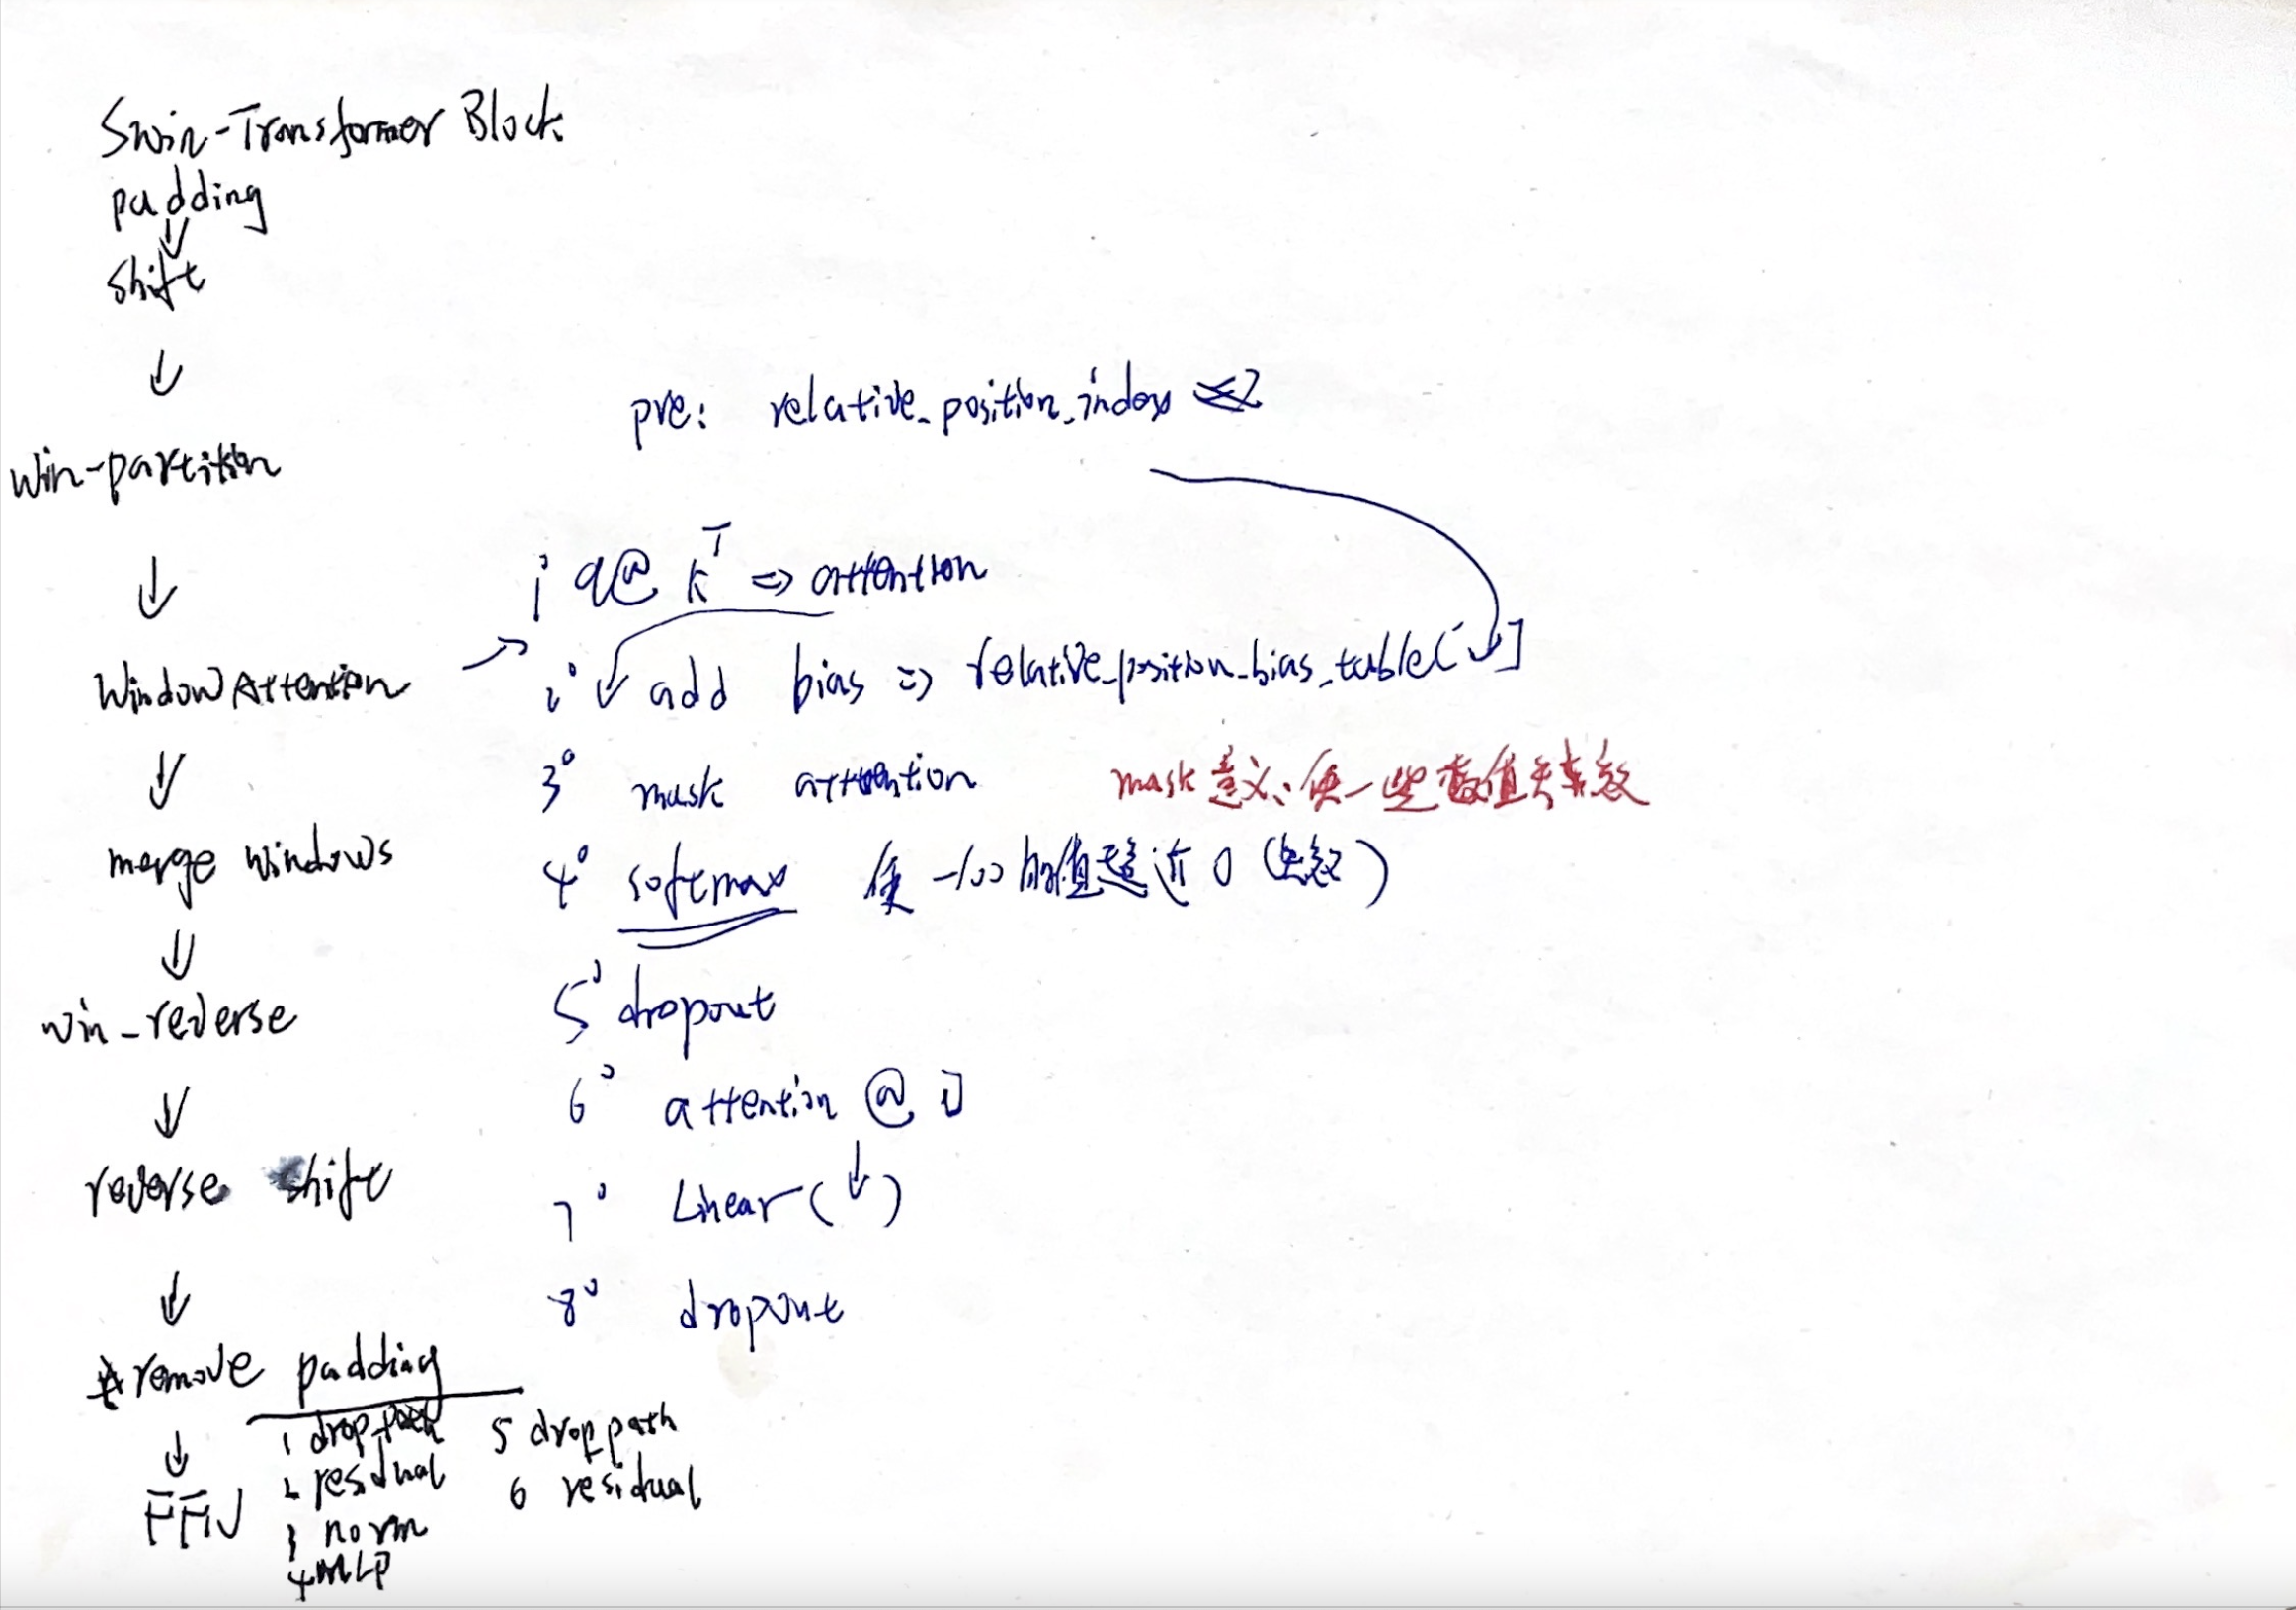 Swin-Transformer Block
padding
shift
win-partition
Window Attention
merge windows
win-reverse
reverse shift
remove padding
FFN
1 drop-path
2 residual
3 norm
4 MLP
5 drop-path
6 residual
pre: relative_position_index
1° q@ k^T ⇒ attention
2° add bias ⇒ relative_position_bias_table[ ]
3° mask attention mask 意义、使一些数值失效
4° softmax 使 -100 的值趋近 0 (失效)
5° dropout
6° attention @ v
7° Linear( )
8° dropout